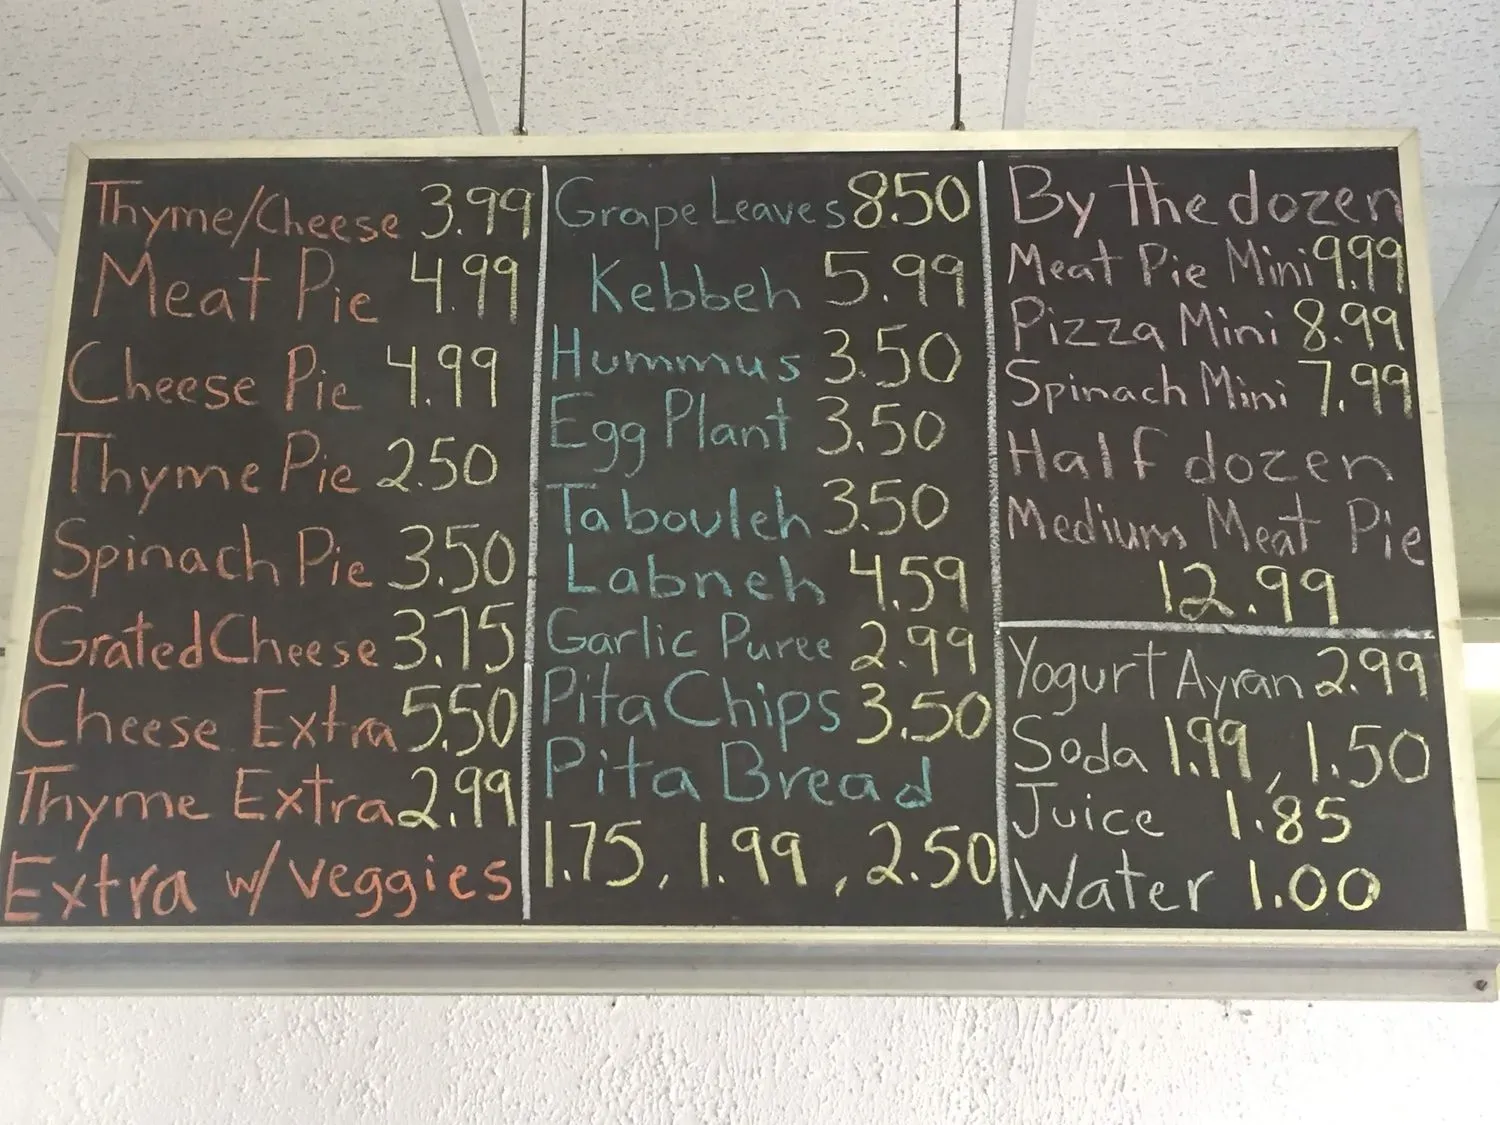 Thyme/Cheese 3.99
Meat Pie 4.99
Cheese Pie 4.99
Thyme Pie 2.50
Spinach Pie 3.50
Grated Cheese 3.75
Cheese Extra 5.50
Thyme Extra 2.99
Extra w/ veggies
Grape Leaves 8.50
Kebbeh 5.99
Hummus 3.50
Egg Plant 3.50
Tabouleh 3.50
Labneh 4.59
Garlic Puree 2.99
Pita Chips 3.50
Pita Bread
1.75, 1.99, 2.50
By the dozen
Meat Pie Mini 9.99
Pizza Mini 8.99
Spinach Mini 7.99
Half dozen
Medium Meat Pie
12.99
Yogurt Ayran 2.99
Soda 1.99, 1.50
Juice 1.85
Water 1.00